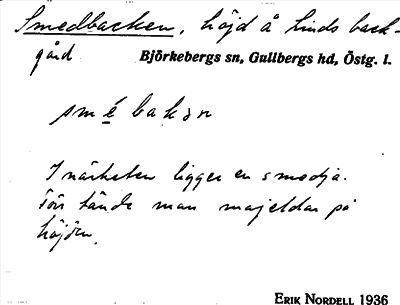 Smedbacken, höjd å Linds back-
gård
Björkebergs sn, Gullbergs hd, Östg. l.
smébakən
I närheten ligger en smedja.
Förr tände man majeldar på
höjden.
ERIK NORDELL 1936